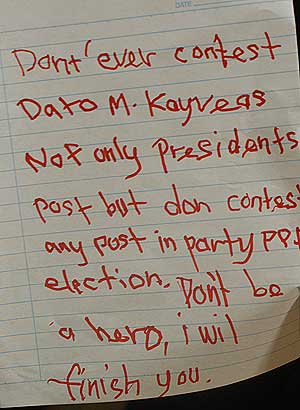 DATE
Dont' ever contest
Dato M. Kayveas
Not only presidents
post but don contest
any post in party PPP
election. Don't be
a hero, i wil
finish you.